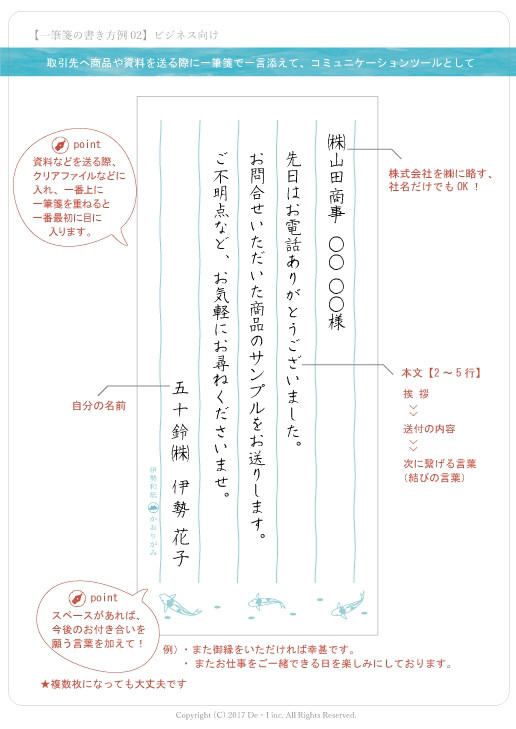 【一筆箋の書き方例 02】ビジネス向け
取引先へ商品や資料を送る際に一筆箋で一言添えて、コミュニケーションツールとして
point
資料などを送る際、
クリアファイルなどに
入れ、一番上に
一筆箋を重ねると
一番最初に目に
入ります。
㈱山田商事 〇〇 〇〇様
先日はお電話ありがとうございました。
お問合せいただいた商品のサンプルをお送りします。
ご不明点など、お気軽にお尋ねくださいませ。
五十鈴㈱ 伊勢 花子
伊勢和紙 かおりがみ
株式会社を㈱に略す、
社名だけでもOK！
本文【2～5行】
挨 拶
送付の内容
次に繋げる言葉
（結びの言葉）
自分の名前
point
スペースがあれば、
今後のお付き合いを
願う言葉を加えて！
例）・また御縁をいただければ幸甚です。
・またお仕事をご一緒できる日を楽しみにしております。
★複数枚になっても大丈夫です
Copyright (C) 2017 De・I inc. All Rights Reserved.